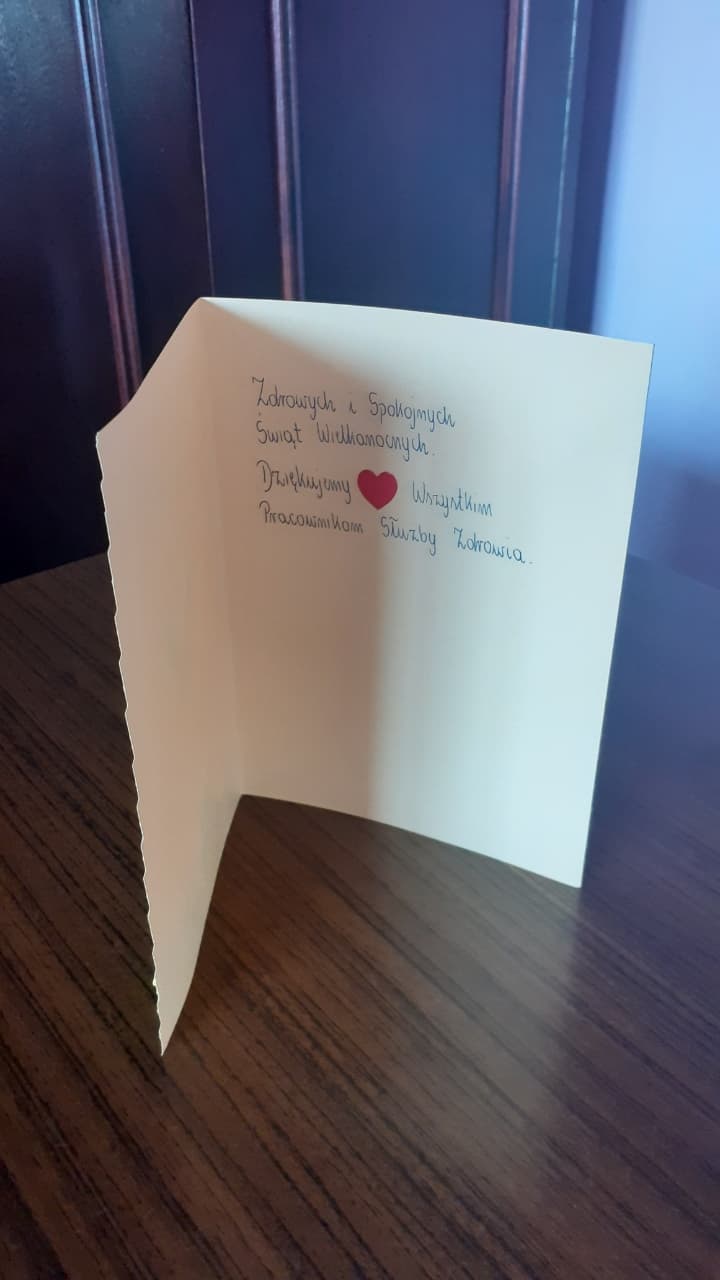 Zdrowych i Spokojnych
Świąt Wielkanocnych.
Dziękujemy ❤ Wszystkim
Pracownikom Służby Zdrowia.